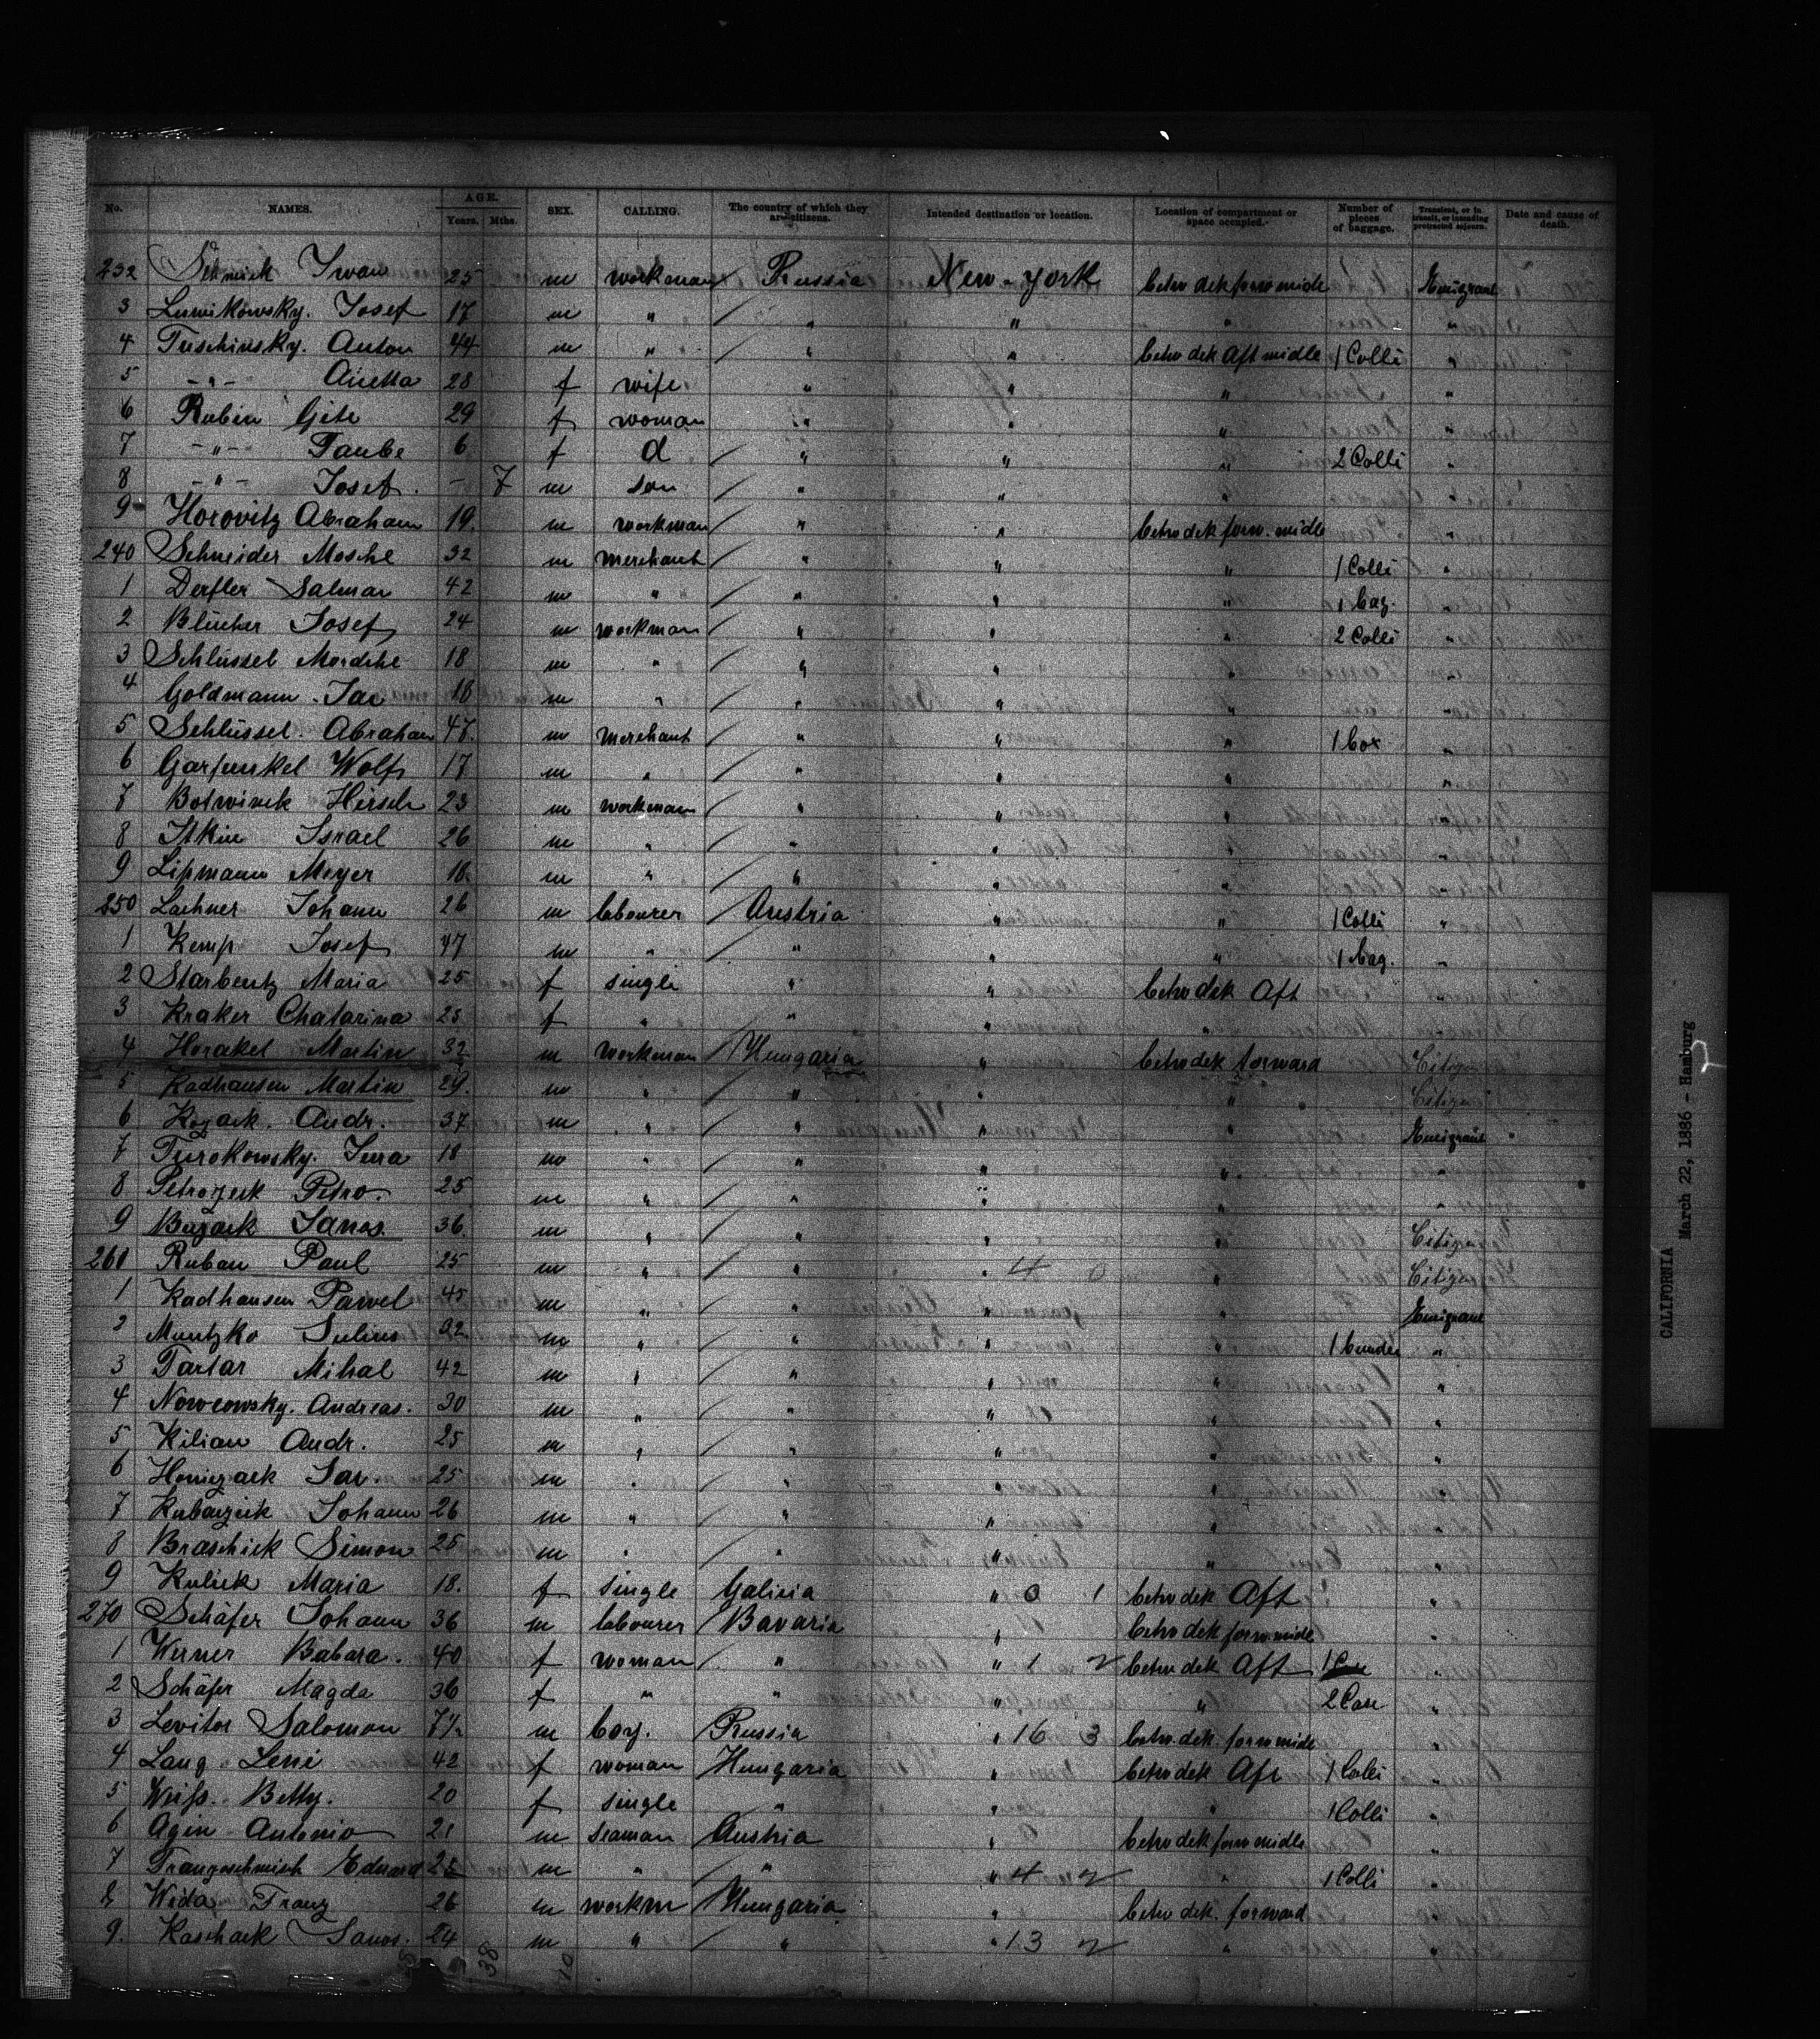 No. NAMES. AGE. Years. Mths. SEX. CALLING. The country of which they are citizens. Intended destination or location. Location of compartment or space occupied. Number of pieces of baggage. Transient, or in transit, or intending protracted sojourn. Date and cause of death.
232 Iwan 25 m workman Russia New-York betw dek forw midle Emigrant
3 Lumikowsky. Josef 17 m " " " " "
4 Tuschinsky. Anton 44 m " " " betw dek Aft midle 1 Colli "
5 -"- 28 f wife " " " "
6 Rubin Gite 29 f woman " " " "
7 -"- Taube 6 f d " " " 2 Colli "
8 -"- Josef. - 7 m son " " " "
9 Horovitz Abraham 19. m workman " " betw dek forw. midle "
240 Schneider Mosche 32 m merchant " " " 1 Colli "
1 Derfler Salman 42 m " " " " 1 bag. "
2 Blücher Josef 24 m workman " " " 2 Colli "
3 Schlüssel Mordche 18 m " " " " "
4 Goldmann. 18 m " " " " "
5 Schlüssel. Abraham 47. m merchant " " " 1 box "
6 Garfunkel Wolf 17 m " " " " "
7 Botwinik Hirsch 23 m workman " " " "
8 Itkin Israel 26 m " " " " "
9 Lipmann Meyer 18. m " " " " "
250 Lachner Johann 26 m labourer Austria " " 1 Colli "
1 Kemp Josef 47 m " " " " 1 bag. "
2 Starbentz Maria 25 f single " " betw dek Aft "
3 Kraker Chatarina 25 f " " " " "
4 Horakel Martin 32 m workman Hungaria " betw dek forward Citizen
5 Kadhansen Martin 29. m " " " " Citizen
6 Kozack. Andr. 37 m " " " " Emigrant "
7 Turokowsky. 18 m " " " " "
8 Petro. 25 m " " " " "
9 Bazack Janos. 36. m " " " " Citizen
260 Ruban Paul 25 m " " " 4 0 " Citizen
1 Kadhansen Pawel 45 m " " " " Emigrant
2 Muntzko Julius 32. m " " " " 1 "
3 Tartar Mihal 42 m " " " " "
4 Nowcowsky. Andreas. 30 m " " " " "
5 Kilian Andr. 25 m " " " " "
6 Jan. 25 m " " " " "
7 Johann 26 m " " " " "
8 Braschick Simon 25 m " " " " "
9 Kulick Maria 18. f single Galicia " 0 1 betw dek Aft "
270 Schäfer Johann 36 m labourer Bavaria " betw dek forw. midle "
1 Werner Babara. 40 f woman " " 1 2 betw dek Aft "
2 Schäfer Magda 36 f " " " " 2 Case "
3 Levitor Salomon 7½ m boy. Russia " 16 3 betw. dek. forw midle "
4 Lang. 42 f woman Hungaria " betw dek Aft 1 Colli "
5 Weiss. Betty. 20 f single " " " 1 Colli "
6 Agin Antonio 21 m seaman Austria " betw dek forw midle "
7 Eduard 25 m " " " 4 2 " 1 Colli "
8 Wida Franz 26 m workm Hungaria " betw dek. forward "
9. Kaschack Janos. 24 m " " " 13 2 " "
38 10
CALIFORNIA
March 22, 1886 - Hamburg
2